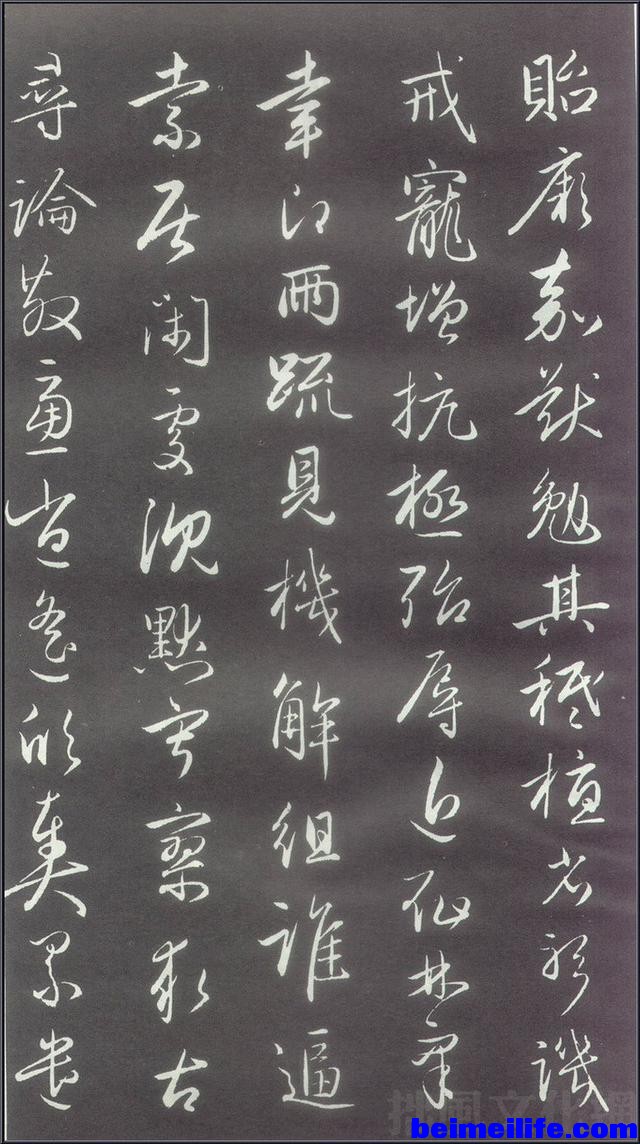 貽厥嘉猷勉其祗植省躬譏
戒寵增抗極殆辱近恥林皋
幸即兩疏見機解組誰逼
索居閑處沉默寂寥求古
尋論散慮逍遙欣奏累遣
拙風文化網
beimeilife.com